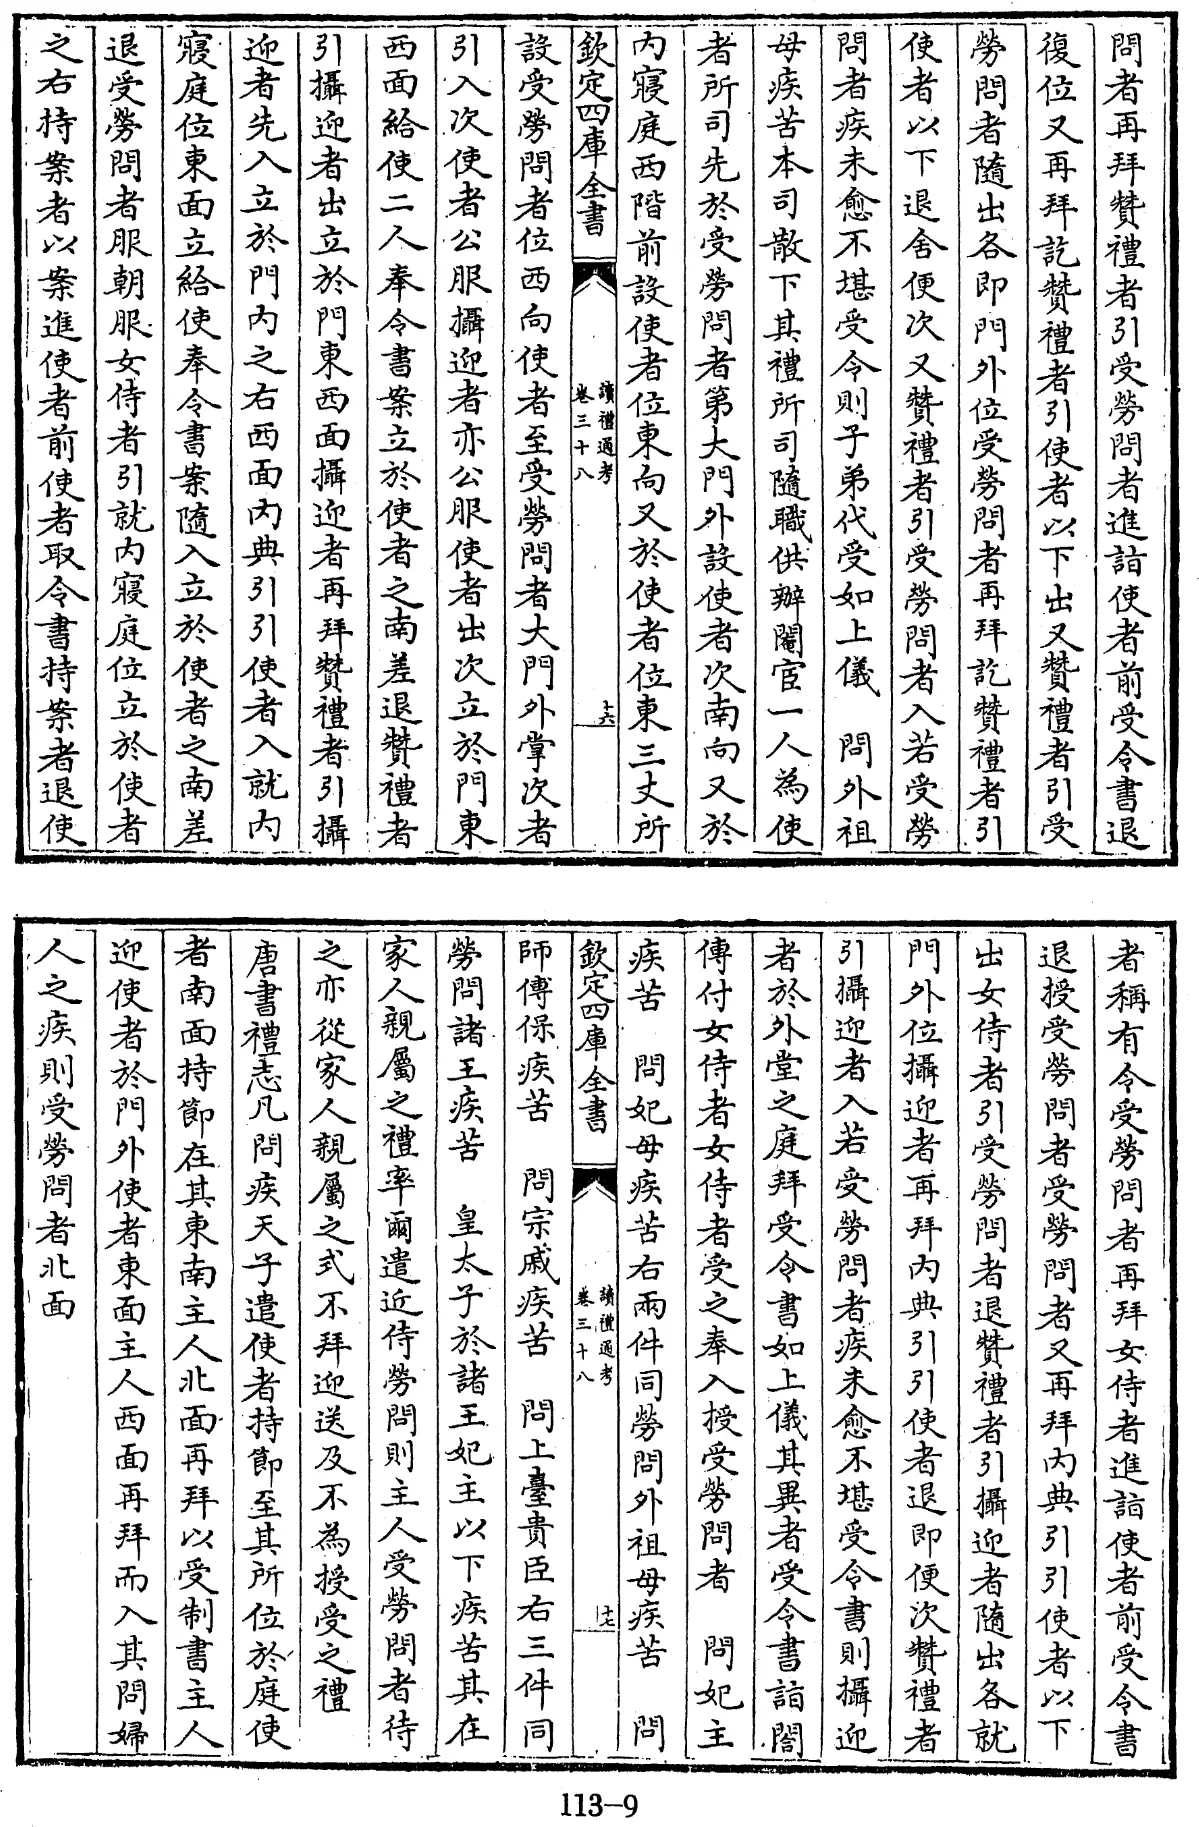 問者再拜贊禮者引受勞問者進詣使者前受令書退
復位又再拜訖贊禮者引使者以下出又贊禮者引受
勞問者隨出各即門外位受勞問者再拜訖贊禮者引
使者以下退舍便次又贊禮者引受勞問者入若受勞
問者疾未愈不堪受令則子弟代受如上儀　問外祖
母疾苦本司散下其禮所司隨職供辦閹宦一人為使
者所司先於受勞問者第大門外設使者次南向又於
內寢庭西階前設使者位東向又於使者位東三丈所
欽定四庫全書
讀禮通考
卷三十八
十六
設受勞問者位西向使者至受勞問者大門外掌次者
引入次使者公服攝迎者亦公服使者出次立於門東
西面給使二人奉令書案立於使者之南差退贊禮者
引攝迎者出立於門東西面攝迎者再拜贊禮者引攝
迎者先入立於門內之右西面內典引引使者入就內
寢庭位東面立給使奉令書案隨入立於使者之南差
退受勞問者服朝服女侍者引就內寢庭位立於使者
之右持案者以案進使者前使者取令書持案者退使
者稱有令受勞問者再拜女侍者進詣使者前受令書
退授受勞問者受勞問者又再拜內典引引使者以下
出女侍者引受勞問者退贊禮者引攝迎者隨出各就
門外位攝迎者再拜內典引引使者退即便次贊禮者
引攝迎者入若受勞問者疾未愈不堪受令書則攝迎
者於外堂之庭拜受令書如上儀其異者受令書詣閤
傳付女侍者女侍者受之奉入授受勞問者　問妃主
疾苦　問妃母疾苦右兩件同勞問外祖母疾苦　問
欽定四庫全書
讀禮通考
卷三十八
十七
師傅保疾苦　問宗戚疾苦　問上臺貴臣右三件同
勞問諸王疾苦　皇太子於諸王妃主以下疾苦其在
家人親屬之禮率爾遣近侍勞問則主人受勞問者待
之亦從家人親屬之式不拜迎送及不為授受之禮
唐書禮志凡問疾天子遣使者持節至其所位於庭使
者南面持節在其東南主人北面再拜以受制書主人
迎使者於門外使者東面主人西面再拜而入其問婦
人之疾則受勞問者北面
113-9